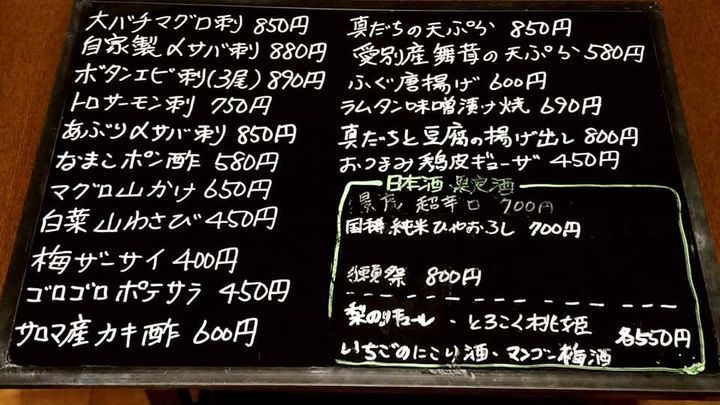 大バチマグロ刺 850円
自家製〆サバ刺 880円
ボタンエビ刺(3尾) 890円
トロサーモン刺 750円
あぶり〆サバ刺 850円
なまこポン酢 580円
マグロ山かけ 650円
白菜山わさび 450円
梅ザーサイ 400円
ゴロゴロポテサラ 450円
サロマ産カキ酢 600円
真だちの天ぷら 850円
愛別産舞茸の天ぷら 580円
ふぐ唐揚げ 600円
ラムタン味噌漬け焼 690円
真だちと豆腐の揚げ出し 800円
おつまみ鶏皮ギョーザ 450円
日本酒 限定酒
超辛口 700円
国稀 純米ひやおろし 700円
獺祭 800円
梨のリキュール・とろこく桃姫
各550円
いちごのにごり酒・マンゴー梅酒